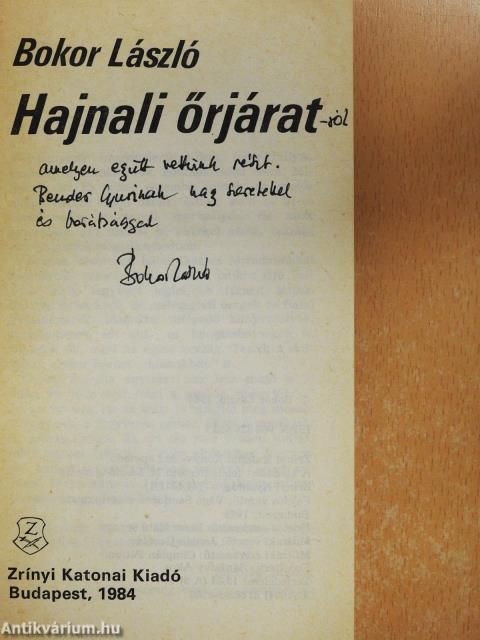 Bokor László
Hajnali őrjárat -ról
amelyen együtt vettünk részt.
Bender Gyurinak nagy szeretettel
és barátsággal
Bokor László
Z
Zrínyi Katonai Kiadó
Budapest, 1984
Antikvárium.hu